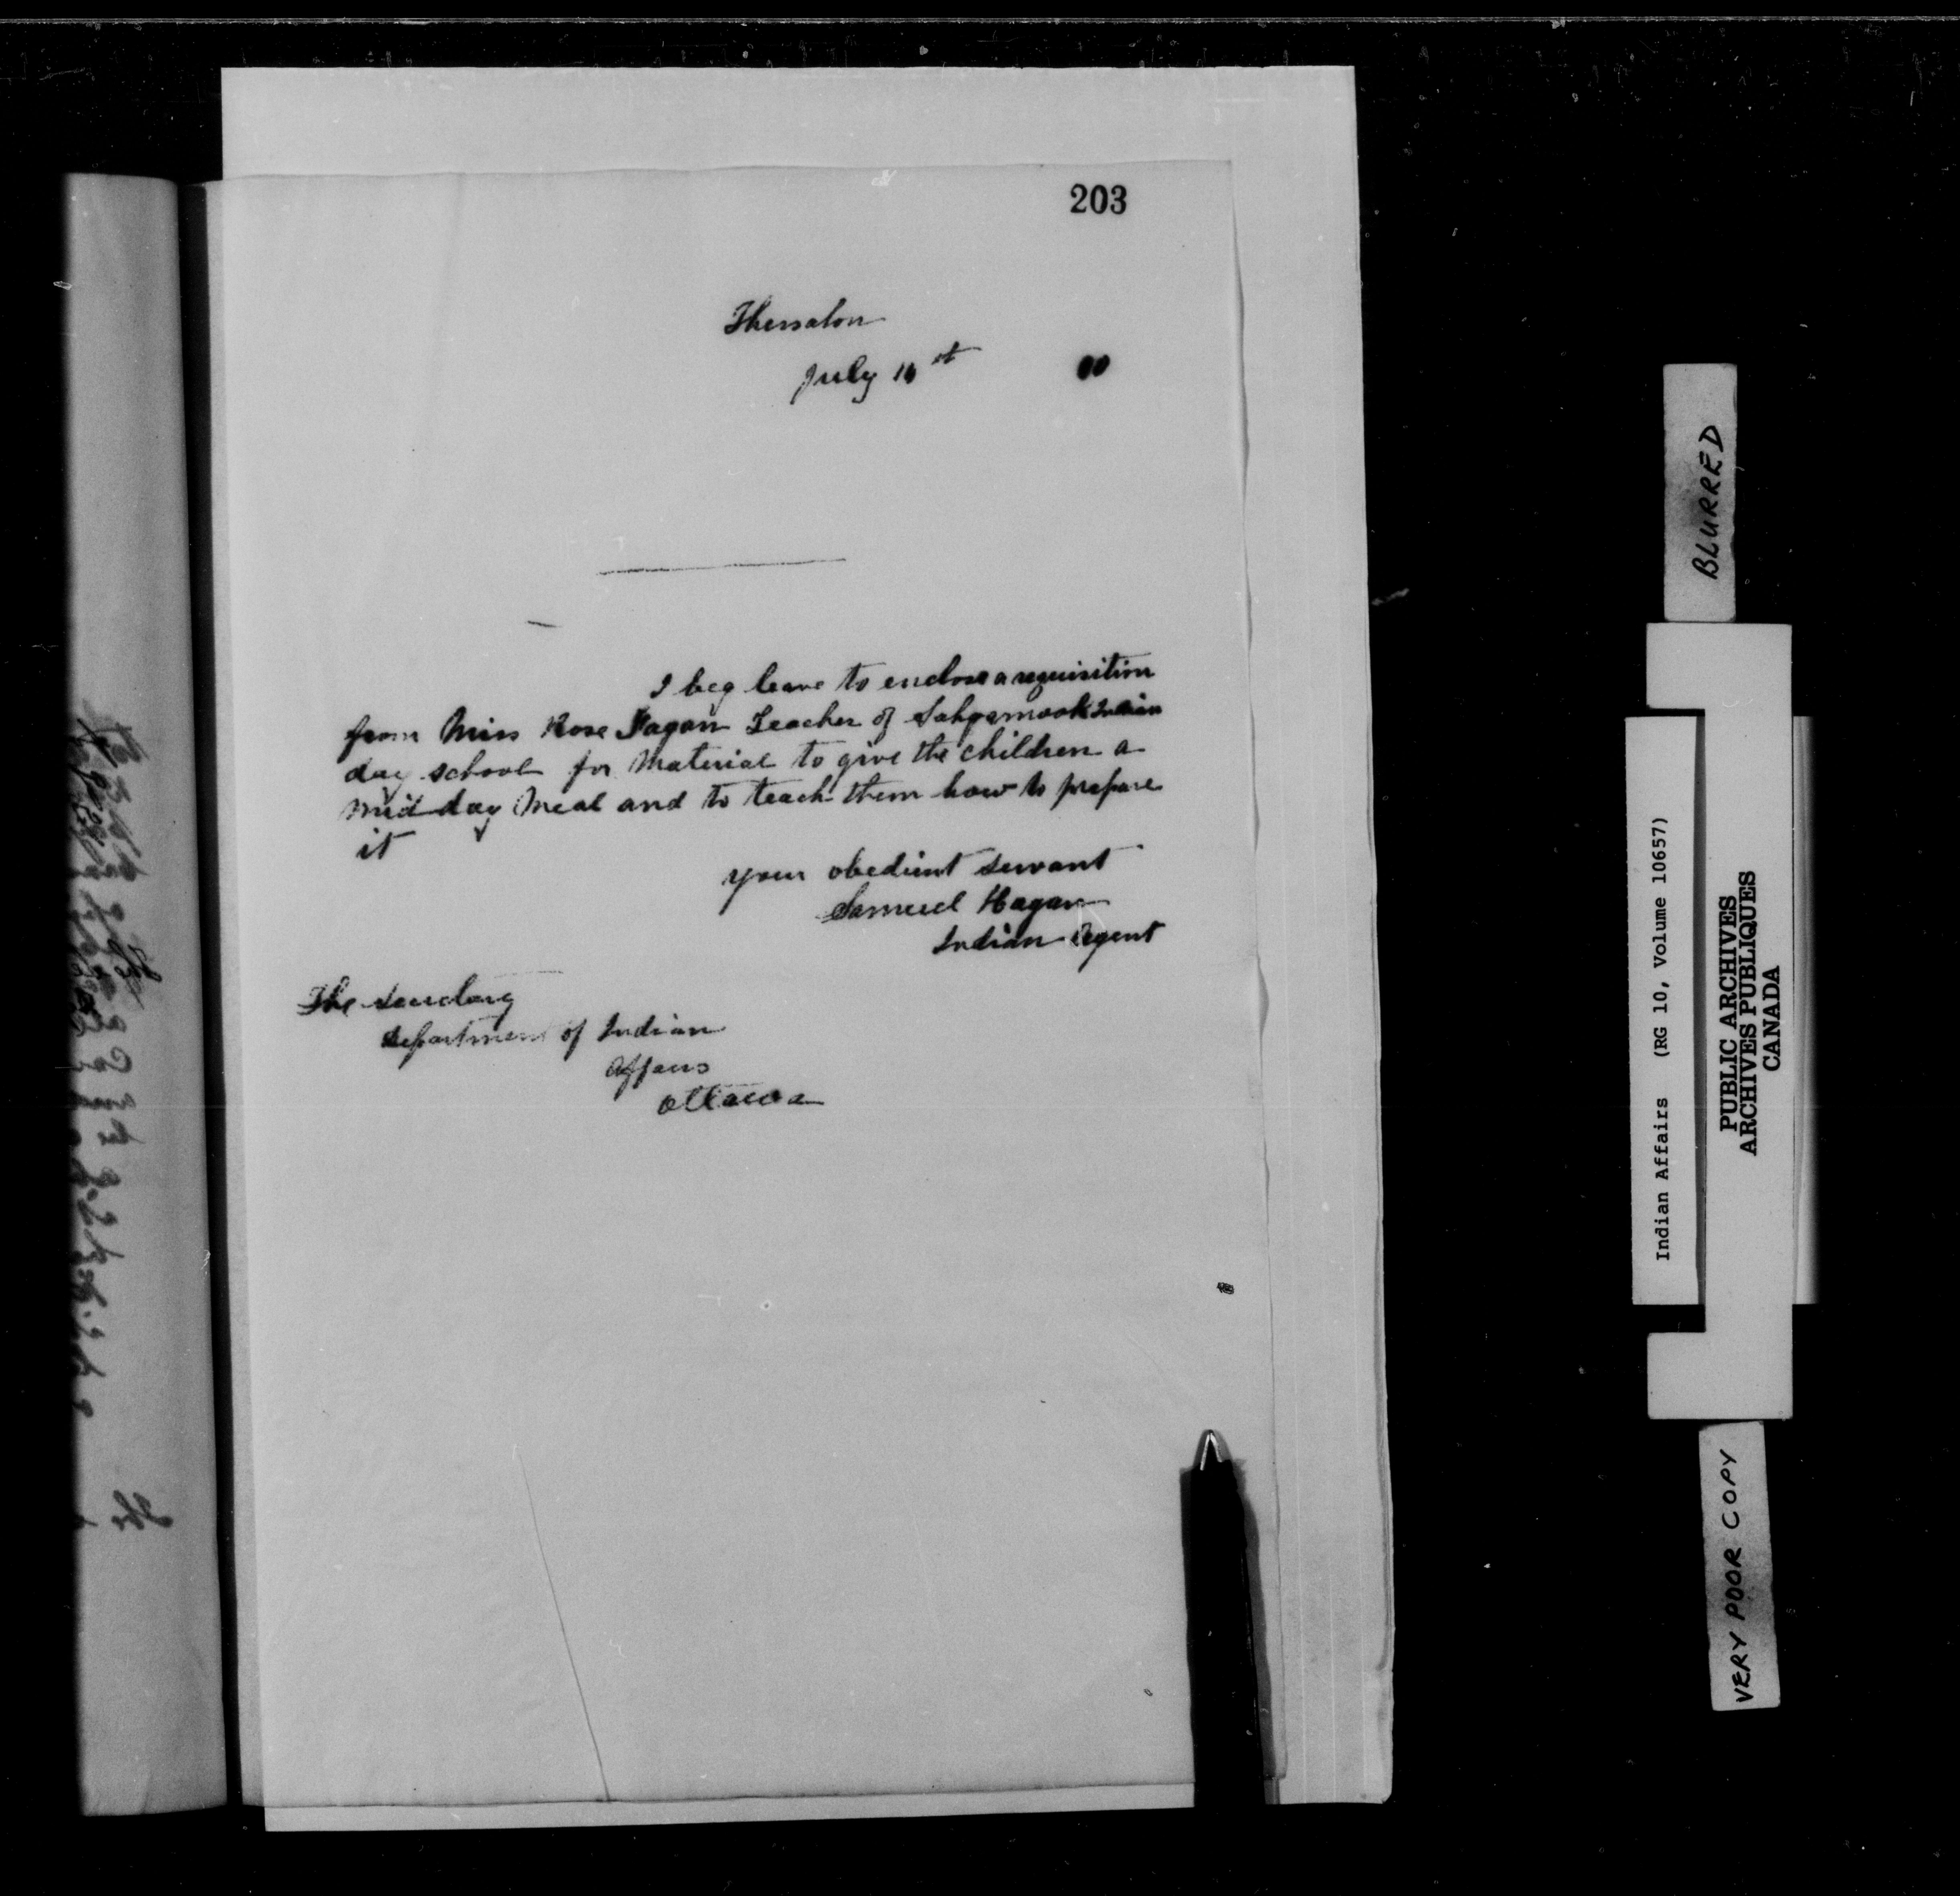 203
Thessalon
July st
I beg leave to enclose a requisition
from Miss Rose Fagan Teacher of Indian
day school for Material to give the children a
mid day Meal and to teach them how to prepare
it
your obedient servant
Samuel Hagan
Indian Agent
The Secretary
Department of Indian
Affairs
Ottawa
BLURRED
Indian Affairs (RG 10, Volume 10657)
PUBLIC ARCHIVES
ARCHIVES PUBLIQUES
CANADA
VERY POOR COPY